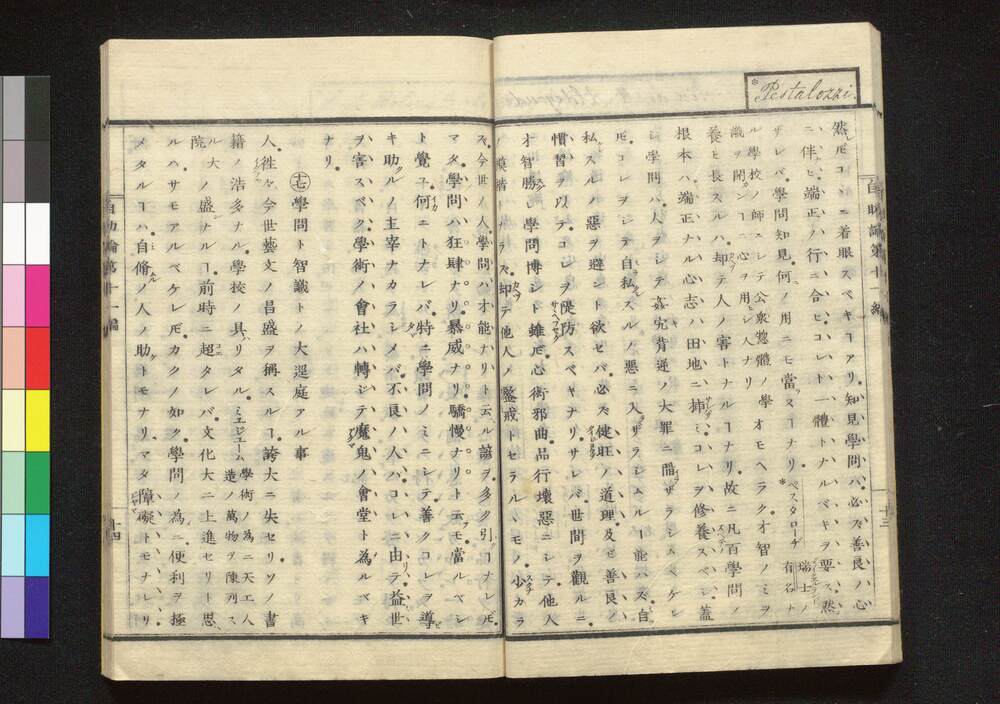 *Pestalozzi.
然𪜈コヽニ着眼スベキヿアリ知見學問ハ必ズ善良ノ心
ニ伴ヒ端正ノ行ニ合ヒコレト一體トナルベキヲ要ス然
ザレバ學問知見何ノ用ニモ當ラヌヿナリ *ペスタローヂ 瑞士ノ有名ナ
ル學校ノ師ニシテ公衆惣體ノ學 オモヘラク才智ノミヲ
識ヲ開カンヿニ心ヲ用ヒシ人ナリ
養ヒ長スルハ却テ人ノ害トナルヿナリ故ニ凡百學問ノ
根本ハ端正ナル心志ハ田地ニ挿ミコレヲ修養スベシ蓋
シ學問ハ人ヲシテ姦宄背逆ノ大罪ニ陥ザラシムベケレ
𪜈コレヲシテ自私スルノ惡ニ入ザラシムルヿ能ハズ自
私スルノ惡ヲ避ント欲セバ必ズ健旺ノ道理及ビ善良ノ
慣習ヲ以テコレヲ隄防スベキナリサレバ世間ヲ觀ルニ
才智勝レ學問博シト雖𪜈心術邪曲品行壞惡ニシテ他人
ノ模楷トナラズ却テ他人ノ鑒戒トセラルヽモノ少カラ
自助論第十一編
十三
ズ今世ノ人學問ハ才能ナリト云ヘル諺ヲ多ク引ヿナレ𪜈
マタ學問ハ狂肆ナリ暴威ナリ驕慢ナリト云モ當ルベシ
ト覺ユ何ニトナレバ特ニ學問ノミニシテ善クコレヲ導
キ助クルノ主宰ナカラシメバ不良ノ人ハコレニ由テ益世
ヲ害スベク學術ノ會社ハ轉ジテ魔鬼ノ會堂ト為ルベキ
ナリ
㊆學問ト智識トノ大逕庭アル事
人徃々今世藝文ノ昌盛ヲ稱スルヿ誇大ニ失セリソノ書
籍ノ浩多ナル學校ノ具ハリタルミユジユーム 學術ノ為ニ天工人造ノ萬物ヲ陳列ス
ル大院ノ盛ナルヿ前時ニ超タレバ文化大ニ上進セリト思
ルハサモアルベケレ𪜈カクノ如ク學問ノ為ニ便利ヲ極
メタルヿハ自脩ノ人ノ助トモナリマタ障礙トモナレリ
自助論第十一編
十四